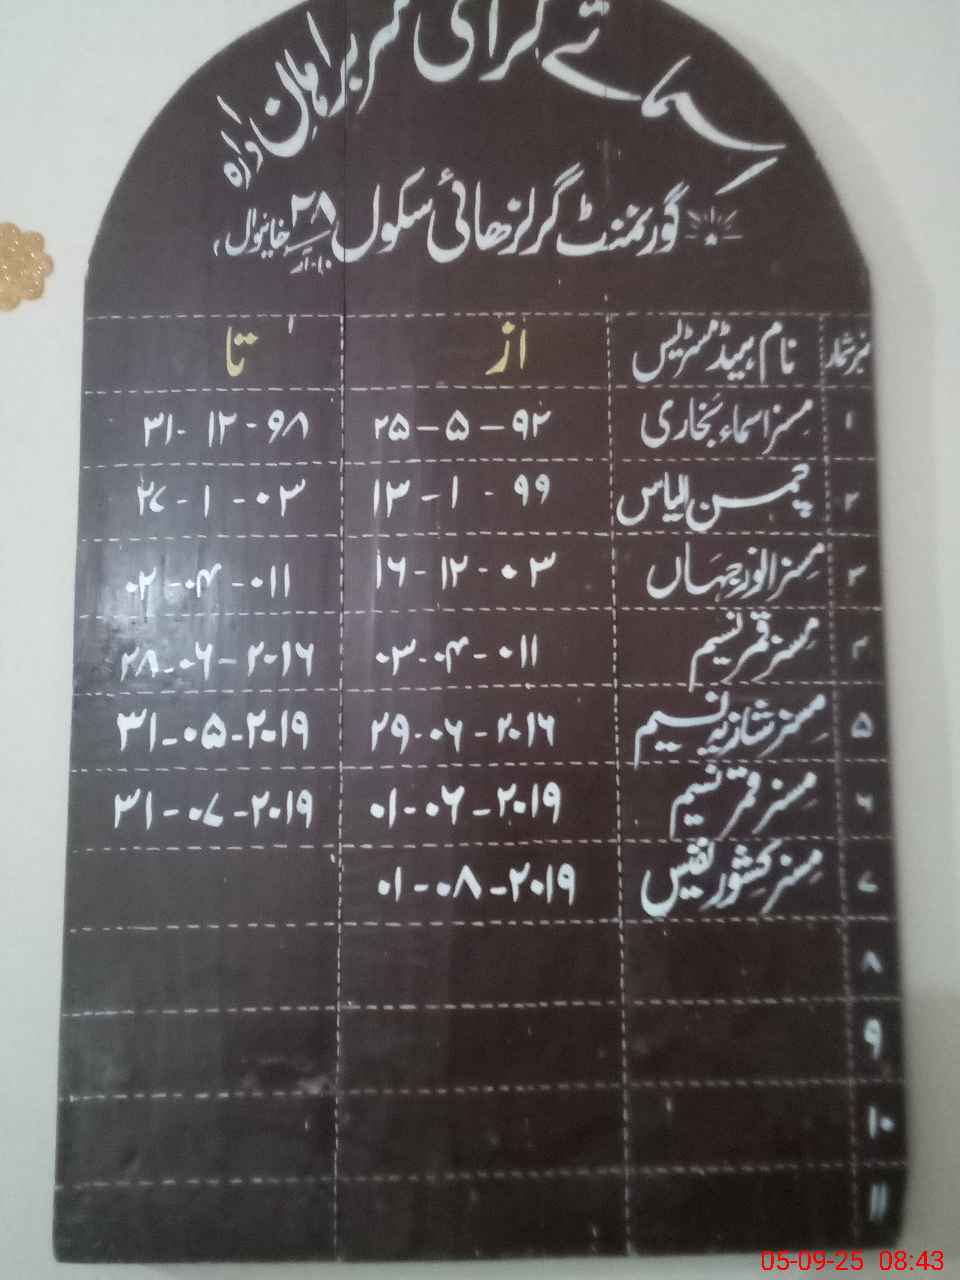 اسمائے گرامی سربراہان ادارہ
گورنمنٹ گرلز ھائی سکول ۲۸/۱۰-آر خانیوال
نمبر شمار نام ہیڈ مسٹریس از تا
۱ مسز اسماء بخاری ۲۵-۵-۹۲ ۳۱-۱۲-۹۸
۲ چمن الیاس ۱۳-۱-۹۹ ۲۷-۱-۰۳
۳ مسز انور جہاں ۱۶-۱۲-۰۳ ۰۲-۰۴-۰۱۱
۴ مسز قمر نسیم ۰۳-۰۴-۰۱۱ ۲۸-۰۶-۲۰۱۶
۵ مسز شازیہ نسیم ۲۹-۰۶-۲۰۱۶ ۳۱-۰۵-۲۰۱۹
۶ مسز قمر نسیم ۰۱-۰۶-۲۰۱۹ ۳۱-۰۷-۲۰۱۹
۷ مسز کشور نفیس ۰۱-۰۸-۲۰۱۹
۸
۹
۱۰
۱۱
05-09-25 08:43